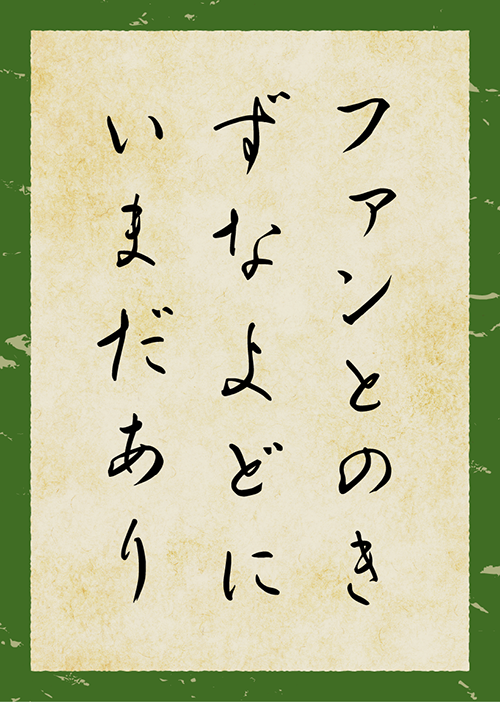 ファンとのき
ずなよどに
いまだあり